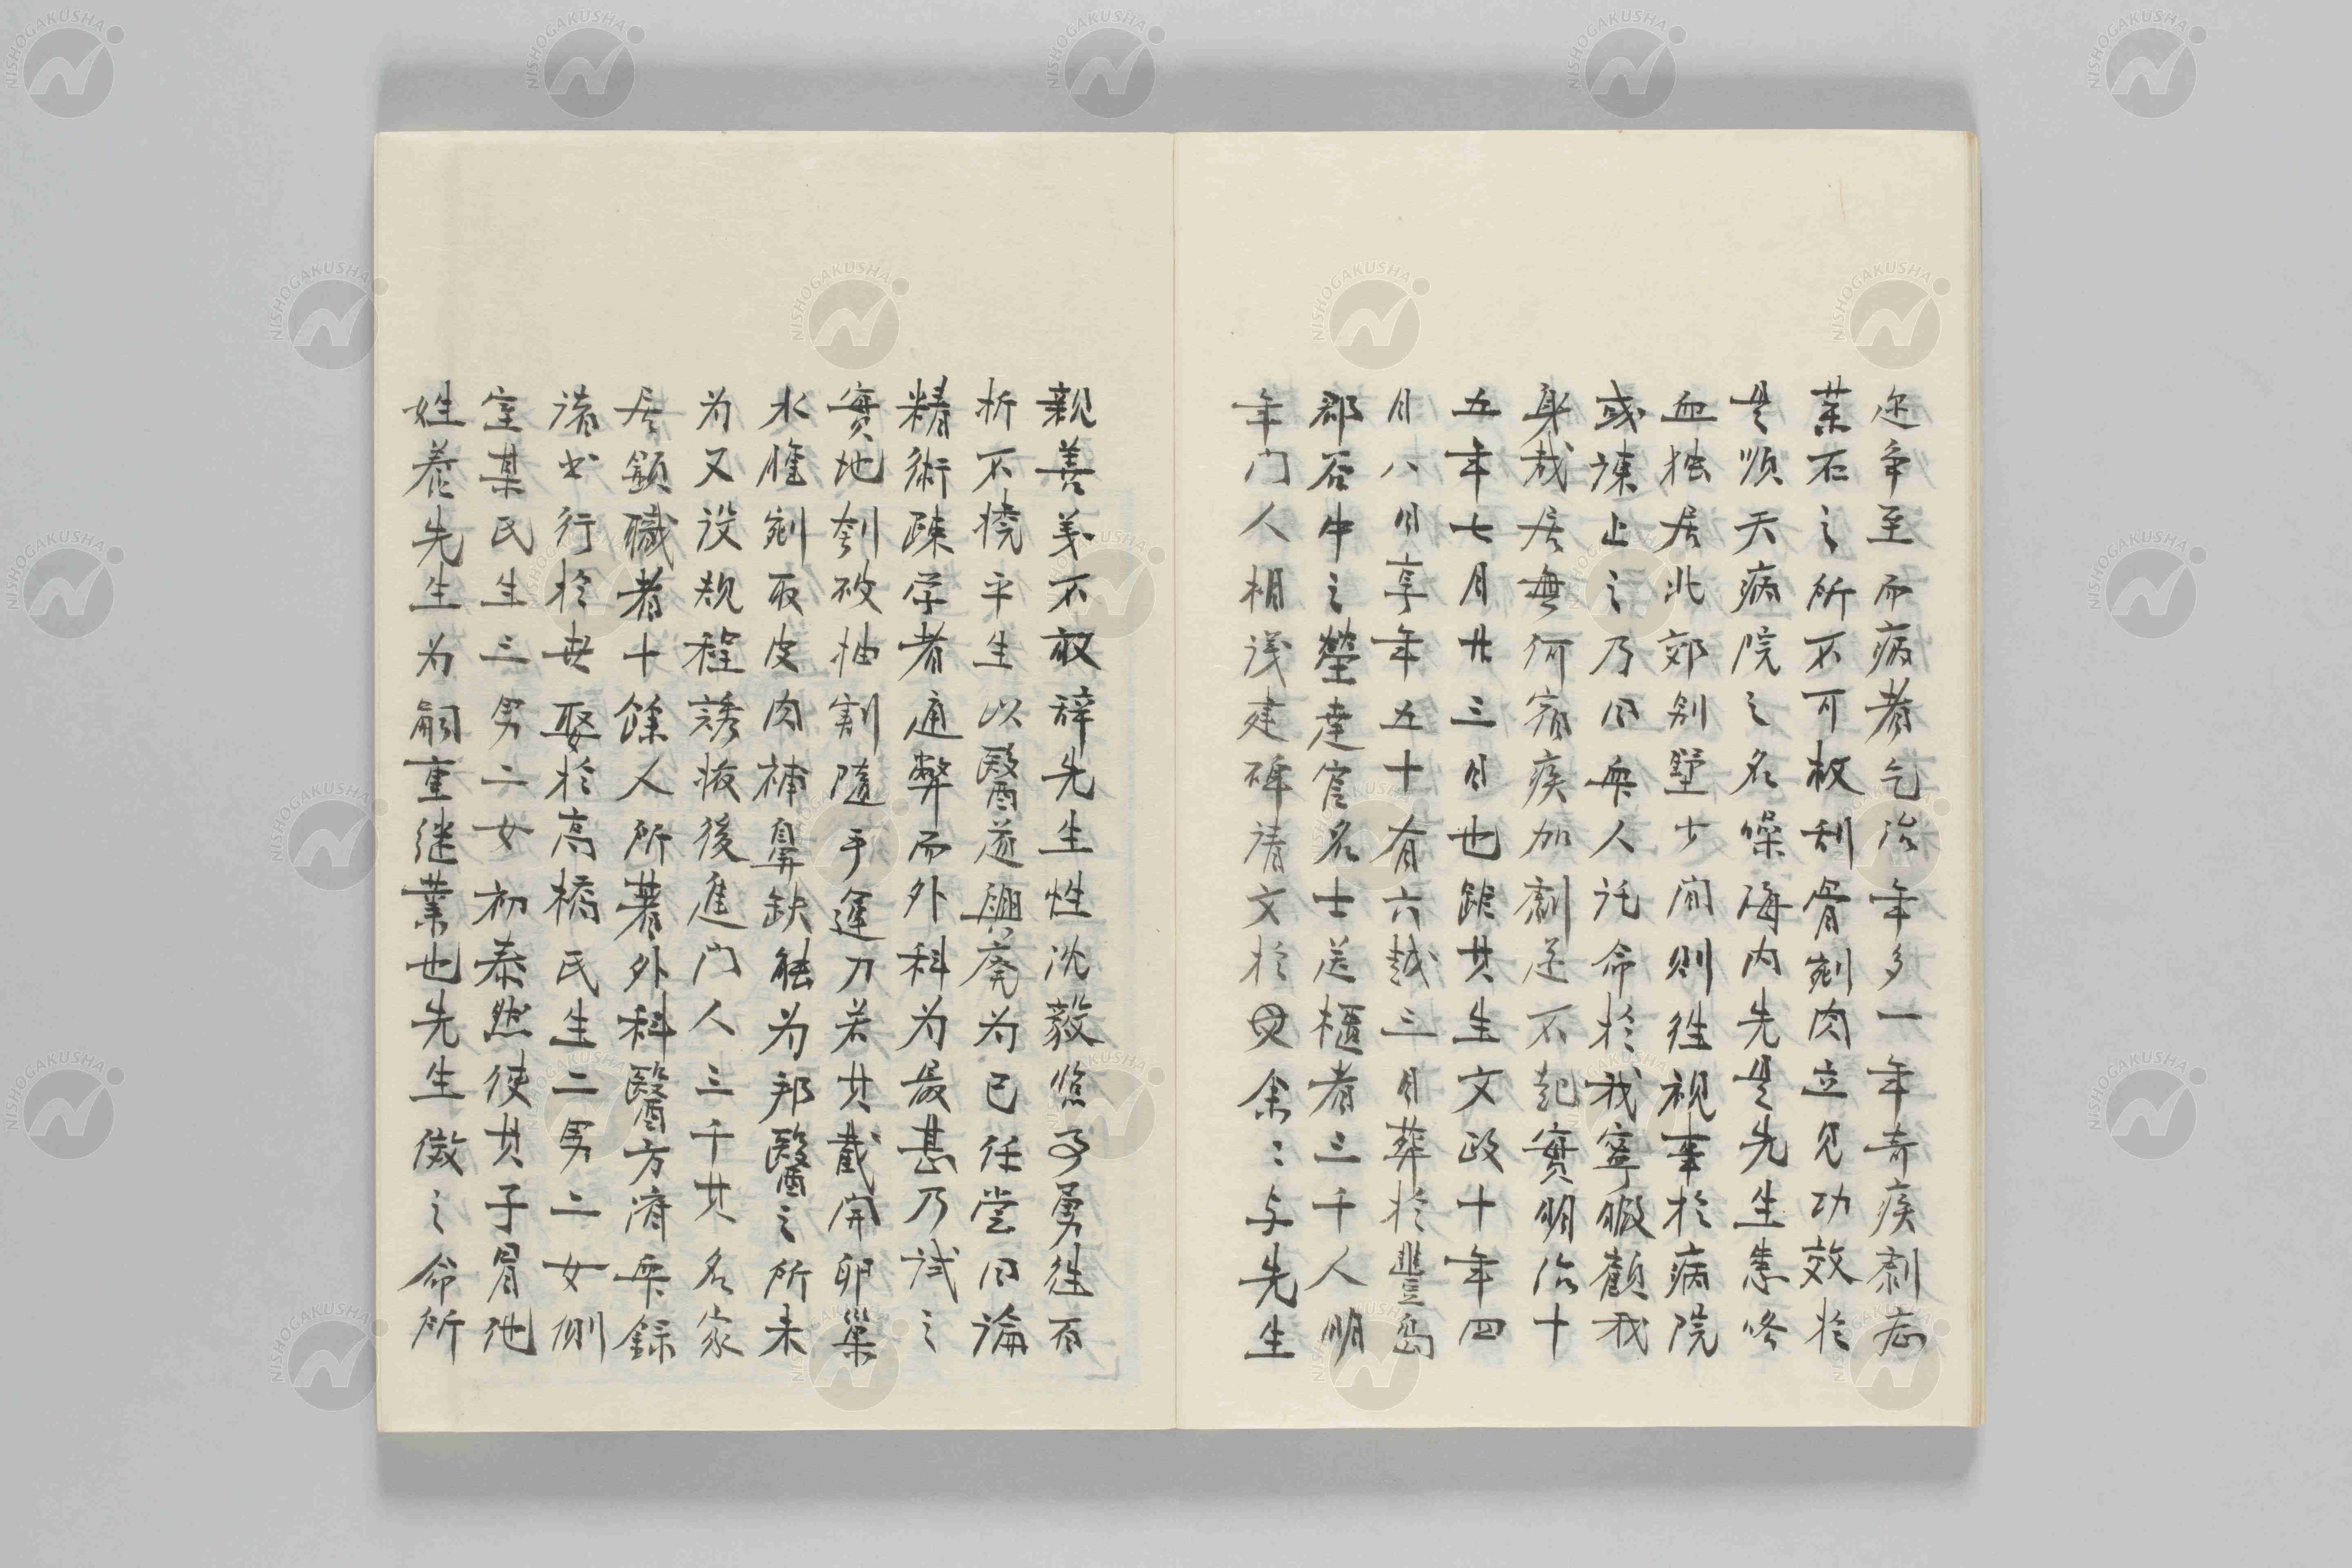 迩争至而病者乞治年多一年奇疾劇症
薬石之所不可救刮骨剜肉立見功效於
是順天病院之名噪海内先是先生患咯
血独居北郊别墅少间則往視事於病院
或諫止之乃曰衆人託命於我寧暇顧我
身哉居無何宿疾加劇遂不起實明治十
五年七月廿三日也距其生文政十年四
月八日享年五十有六越三日葬於豊島
郡谷中之塋達官名士送櫃者三千人明
年门人相议建碑請文於余〻与先生
親善義不敢辞先生性沈毅临事勇往百
折不撓平生以醫道興廃为己任嘗曰論
精術疎学者通弊而外科为最甚乃試之
實地刳破抽割隨手運刀若其截開卵巢
水腫剜取皮肉補鼻缺能为邦醫之所未
为又设规程誘掖後進门人三千其名家
居顕職者十餘人所著外科醫方濟衆録
诸书行於世娶於高橋氏生二男二女側
室某氏生三男二女初泰然使其子冒他
姓养先生为嗣重继業也先生微之命所